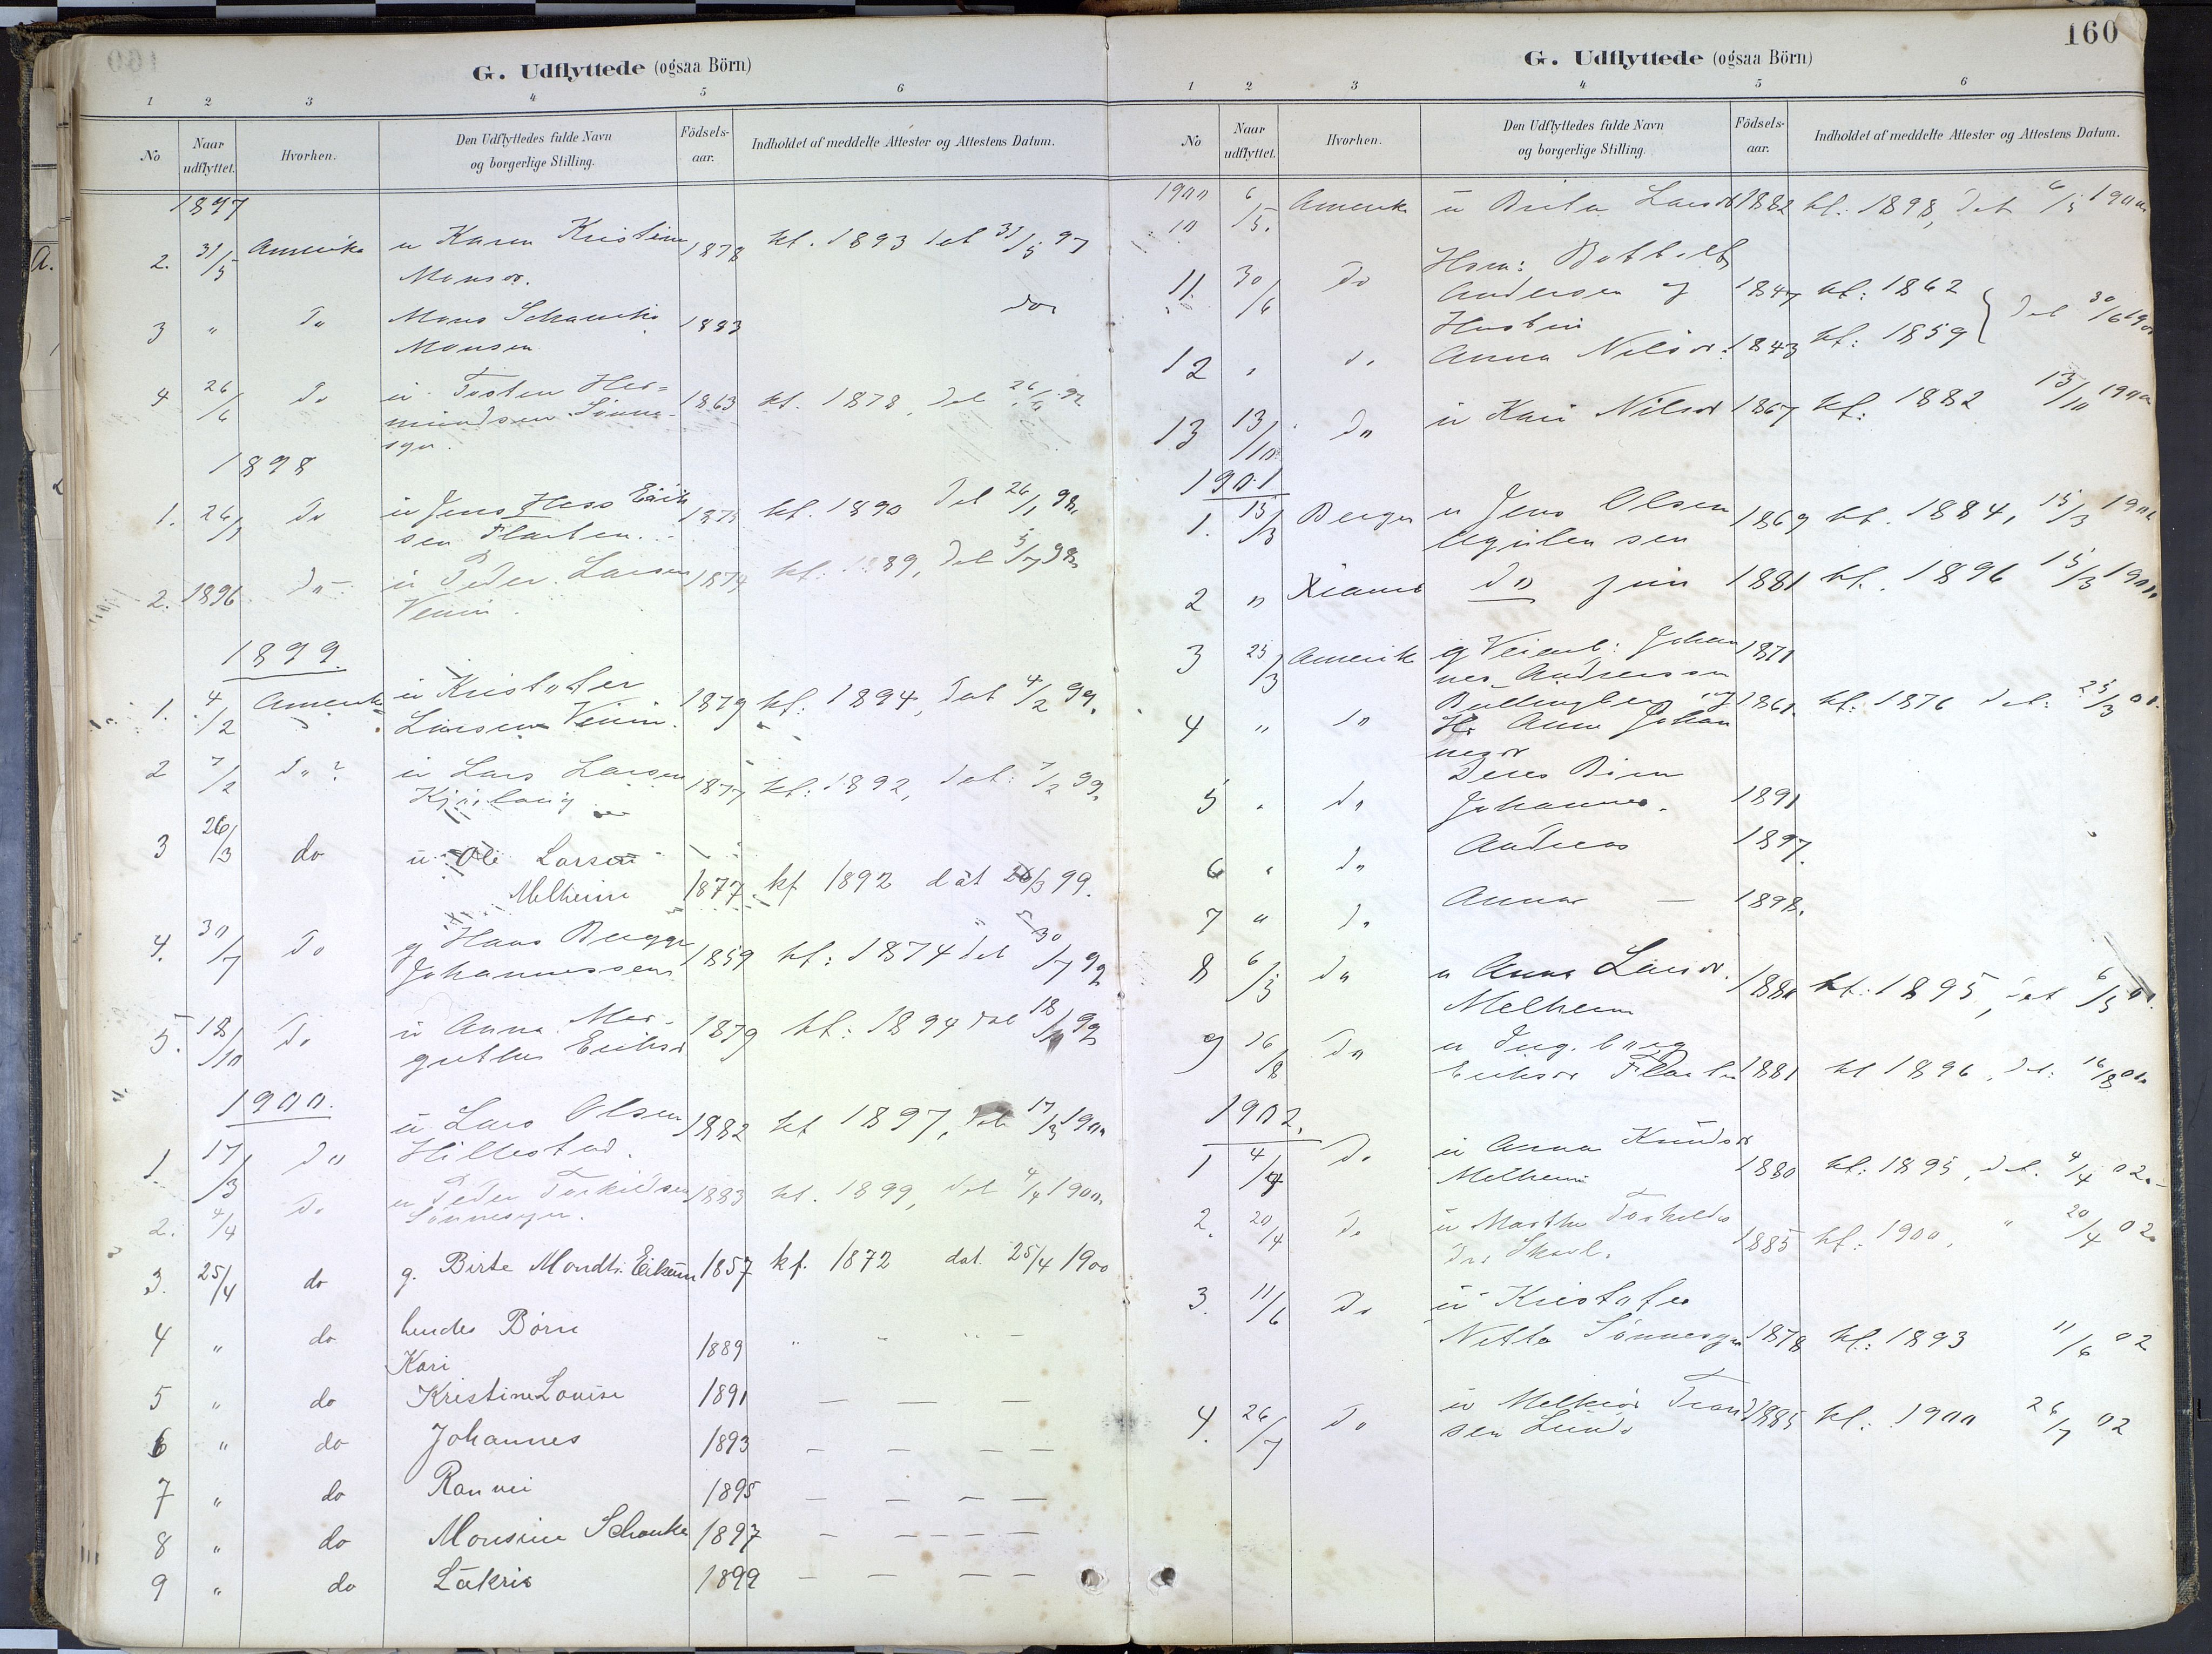 G. Udflyttede (ogsaa Börn)
1 2 3 4 5 6
No
Naar udflyttet.
Hvorhen.
Den Udflyttedes fulde Navn og borgerlige Stilling.
Födsels-aar.
Indholdet af meddelte Attester og Attestens Datum.
1897
2. 31/5 Amerika u Karen Kristine 1878 kf. 1893 dat 31/5 97
Monsdr.
3 " Do Mons Schanche 1883 do
Monsen
4 26/6 Do u. Tosten Her= 1863 kf. 1878, dat 26/6 97
mundsen Sønne-
syn.
1898
1. 26/1 Do u Jens Hess Erik 1875 kf. 1890 dat 26/1 98.
sen Flaten.
2. 1896 Do u Peder Larsen 1874 kf: 1889, dat 5/7 98
Venin.
1899.
1. 4/2 Amerika u Kristofer 1879 kf. 1894, dat 4/2 99.
Larsen Venin.
2 7/2 Do u Lars Larsen 1877 kf: 1892, dat: 7/2 99.
3 26/3 do u Ole Larsen
Melheim 1877 kf 1892 dat 26/3 99.
4. 30/7 Do g Hans Bugge 1859 kf: 1874 dat 30/7 99
Johannessen
5. 18/10 Do u Anna Mar- 1879 kf: 1894 dat 18/10 99
grethe Eriksd
1900.
u Lars Olsen 1882 kf 1897, dat 17/3 1900
1. 17/3 Do Hillestad.
2. 4/4 Do u Peder Torkildsen 1883 kf. 1899, dat 4/4 1900
Sønnesyn.
3. 25/4 do g. Birte Mondtr. Eikum 1857 kf. 1872 dat. 25/4 1900
4 " do hendes Børn
Kari 1889 " " " —
5 " do Kristine Louise 1891 — — — —
6 " do Johannes 1893 — — — —
7 " do Ranvei 1895 — — — —
8 " do Monsine Schanke 1897 — — — — —
9 " do Lakris 1899 — — — —
160
G. Udflyttede (ogsaa Börn)
1 2 3 4 5 6
No
Naar udflyttet.
Hvorhen.
Den Udflyttedes fulde Navn og borgerlige Stilling.
Födsels-aar.
Indholdet af meddelte Attester og Attestens Datum.
1900
10 6/5. Amerika u Brita Larsdr 1882 kf: 1898, dat 6/5 1900
Hsm: Botholf
11. 30/6 Do Andersen og 1847 kf: 1862 } dat 30/6 1900
Hustru
12 " Do Anna Nilsdr. 1843 kf: 1859
13 13/10 Do u Kari Nilsdr 1867 kf: 1882 13/10 1900
1901
1. 15/3 Bergen u Jens Olsen 1869 kf. 1884, 15/3 1901
2 " Xiania do 1881 kf. 1896 15/3 1901
3 25/3 Amerika g Veiarb: Johan 1871
nes Andersen
4 " Do Hr Anna Johan 1861. kf: 1876 dat: 25/3 01.
nesdr
Deres Børn
5 " Do Johannes. 1891
6 " Do Andreas 1897.
7 " Do Anna — 1898.
8 6/5 Do u Anna Larsdr. 1880 kf: 1895, dat 6/5 01.
Melheim
9 16/8 Do u Ingeborg
Eriksdr Flaten 1881 kf 1896, dat: 16/8 01.
1902.
1 4/4 Do u Anna Knudsdr 1880 kf: 1895, dat. 4/4 02.
Melheim
2. 20/4 Do u Marthe Torkilds 1885 kf: 1900, " 20/4 02
3. 11/6 Do u Kristofer
Sønnesyn 1878 kf: 1893 11/6 02
4. 26/7 Do u Melkior Trond 1885 kf: 1900 26/7 02
sen Lunde